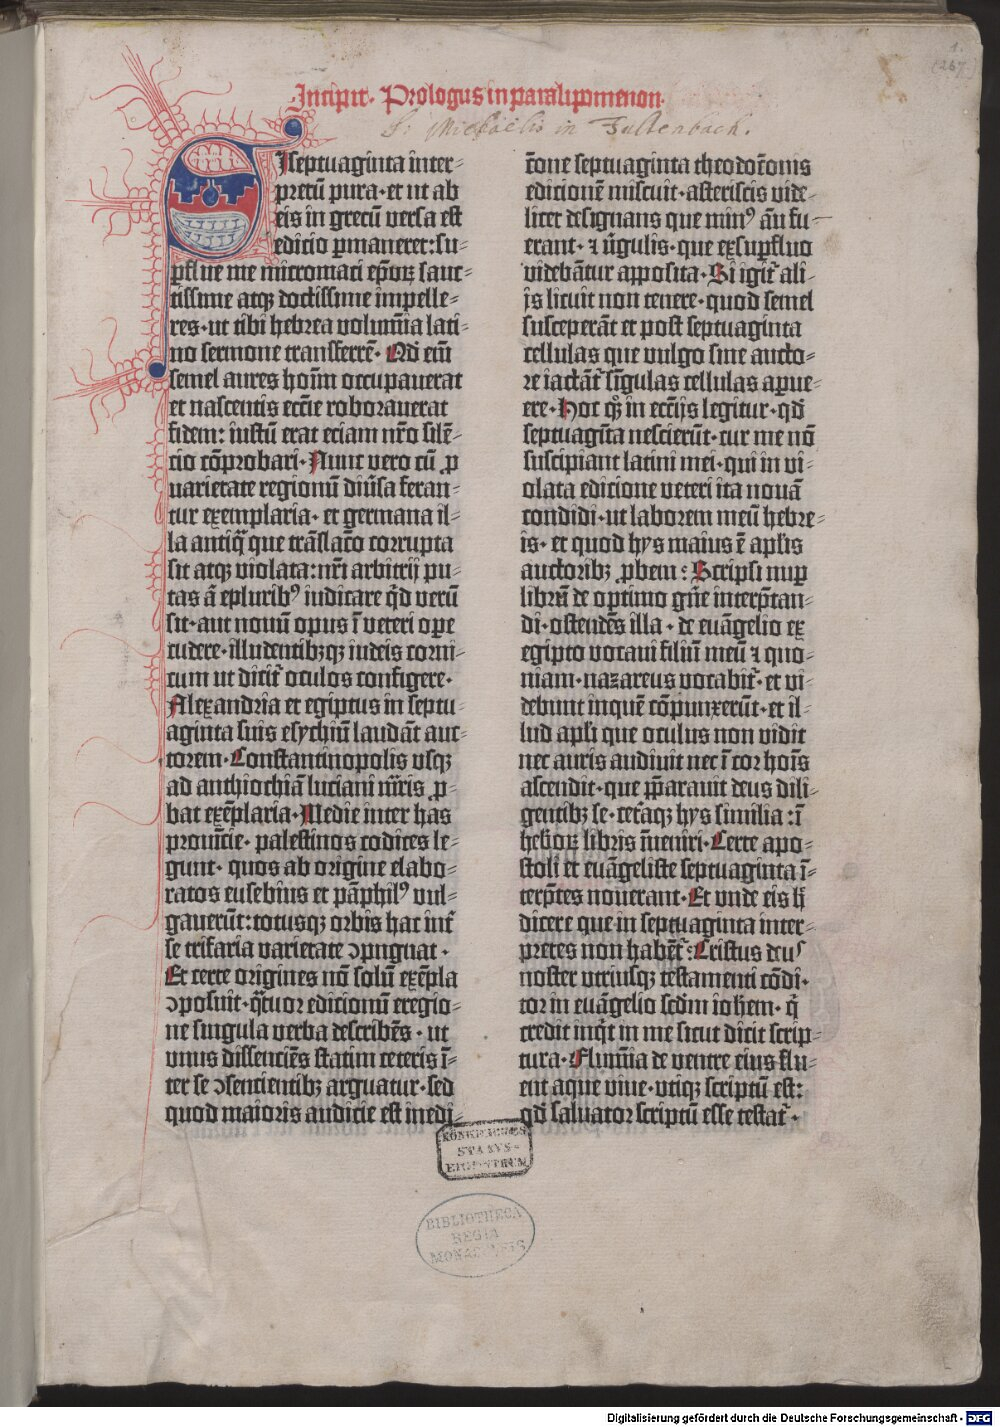 1.
(267)
Incipit. Prologus in paralipomenon.
S: Michaelis in
SJ septuaginta inter⸗
pretū pura· et ut ab
eis in grecū versa est
edicio ꝑmaneret: su⸗
ꝑflue me micromati ep̄oꝝ sanc⸗
tissime atqꝫ doctissime impelle⸗
res· ut tibi hebrea volumīa lati⸗
no sermone transferrē· Qd̄ em̄
semel aures hoīm occupauerat
et nascentis ecc̄ie roborauerat
fidem: iustū erat eciam nr̄o silē⸗
cio cōprobari· Nunc vero cū ꝓ
varietate regionū diūsa feran⸗
tur exemplaria· et germana il⸗
la antiq̄ que trāslac̄o corrupta
sit atqꝫ violata: nr̄i arbitrij pu⸗
tas ā epluribꝰ iudicare qd̄ verū
sit· aut nouū opus ī veteri oꝑe
cudere· illudentibꝫqꝫ iudeis corni⸗
cum ut dicit̄ oculos configere·
Alexandria et egiptus in septu⸗
aginta suis esychiū laudāt auc⸗
torem· Constantinopolis vsqꝫ
ad anthiochiā luciani m̄ris ꝓ⸗
bat exēplaria· Medie inter has
prouīcie· palestinos codices le⸗
gunt· quos ab origine elabo⸗
ratos eusebius et pāphilꝰ vul⸗
gauerūt: totusqꝫ orbis hac int̄
se trifaria varietate ↄpugnat·
Et certe origines nō solū exēpla
ↄposuit· q̄tuor edicionū eregio⸗
ne singula verba describēs· ut
vnus dissenciēs statim ceteris ī⸗
ter se ↄsentientibꝫ arguatur· sed
quod maioris audacie est inedi⸗
c̄one septuaginta theodoc̄onis
edicionē miscuit· asteriscis vide⸗
licet designans que minꝰ ān fu⸗
erant· ⁊ ūgulis· que ex suꝑfluo
videbāntur apposita· Si igit̄ ali⸗
is licuit non tenere· quod semel
susceperāt et post septuaginta
cellulas que vulgo sine aucto⸗
re iactāt̄ sīgulas cellulas apue⸗
ere· Hoc qꝫ in ecc̄ijs legitur· qd̄
septuagīta nescierūt· cur me nō
suscipiant latini mei· qui in vi⸗
olata edicione veteri ita nouā
condidi· ut laborem meū hebre⸗
is· et quod hys maius ē apl̄is
auctoribꝫ ꝓbem: Scripsi nuꝑ
librū de optimo gn̄e interp̄tan⸗
di· ostendēs illa· de euāgelio ex
egipto vocaui filiū meū ⁊ quo⸗
niam· nazareus vocabit̄· et vi⸗
debunt inquē cōpunxerūt· et il⸗
lud apl̄i que oculus non vidit
nec auris audiuit nec ī cor hoīs
ascendit· que p̄parauit deus dili⸗
gentibꝫ se· cet̄aqꝫ hys similia: ī
heb̄oꝝ libris īueniri· Certe apo⸗
stoli et euāgeliste septuaginta ī⸗
terp̄tes nouerant· Et vnde eis h̄
dicere que in septuaginta inter⸗
pretes non habēt̄: Cristus deus
noster vtriusqꝫ testamenti cōdi⸗
tor in euāgelio scd̄m iohem· q̄
credit inq̄t in me sicut dicit scrip⸗
tura· Flumīa de ventre eius flu⸗
ent aque viue· vtiqꝫ scriptū est:
qd̄ saluator scriptū esse testat̄·
STAATS⸗
EIGENTHUM
BIBLIOTHECA
REGIA
MONACENSIS
Digitalisierung gefördert durch die Deutsche Forschungsgemeinschaft - DFG